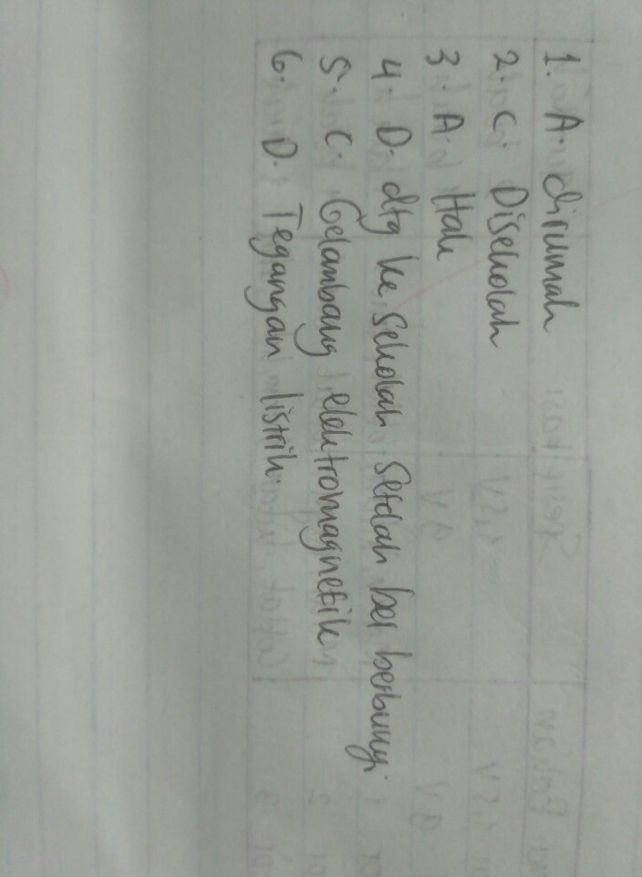 1. A. dirumah
2. C. Disekolah
3. A. Hak
4. D. dtg ke sekolah setelah bel berbunyi
5. C. Gelambang elektromagnetik
6. D. Tegangan listrik.